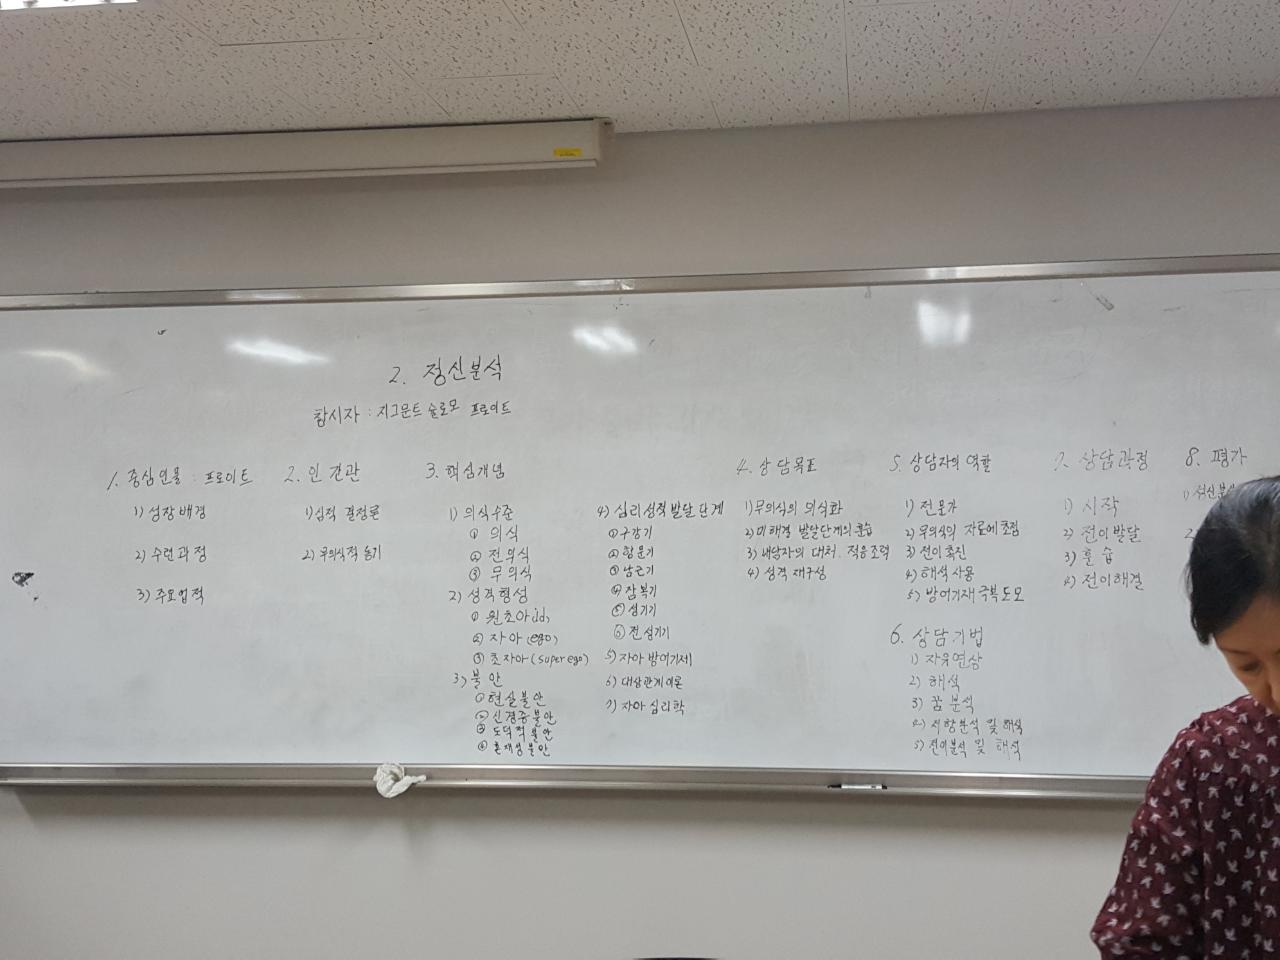 2. 정신분석
창시자 : 지그문트 슐로모 프로이트
1. 중심인물 : 프로이트
1) 성장배경
2) 수련과정
3) 주요업적
2. 인간관
1) 심적 결정론
2) 무의식적 동기
3. 핵심개념
1) 의식수준
① 의식
② 전의식
③ 무의식
2) 성격형성
① 원초아(id)
② 자아(ego)
③ 초자아(super ego)
3) 불안
① 현실불안
② 신경증불안
③ 도덕적불안
④ 존재성불안
4) 심리성적발달단계
① 구강기
② 항문기
③ 남근기
④ 잠복기
⑤ 성기기
⑥ 전성기기
5) 자아방어기제
6) 대상관계이론
7) 자아심리학
4. 상담목표
1) 무의식의 의식화
2) 미해결 발달단계의 훈습
3) 내담자의 대처, 적응조력
4) 성격 재구성
5. 상담자의 역할
1) 전문가
2) 무의식의 자료에 초점
3) 전이촉진
4) 해석사용
5) 방어기재극복도모
6. 상담기법
1) 자유연상
2) 해석
3) 꿈분석
4) 저항분석 및 해석
5) 전이분석 및 해석
7. 상담과정
1) 시작
2) 전이발달
3) 훈습
4) 전이해결
8. 평가
1)
2